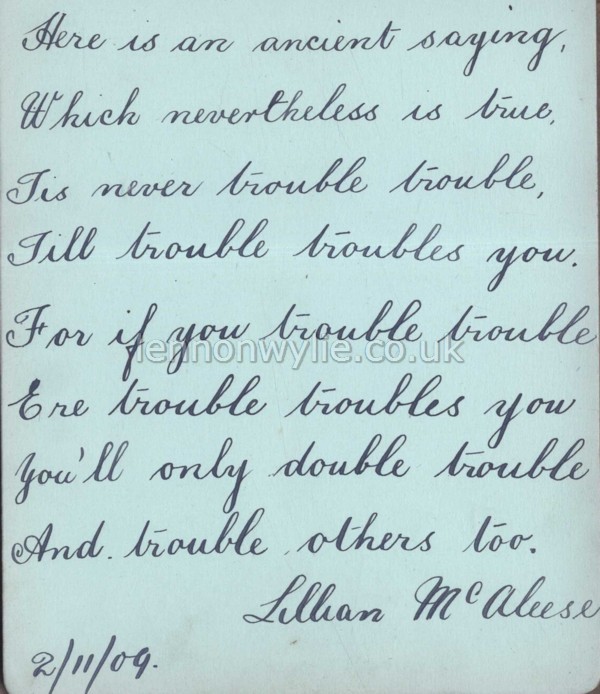 Here is an ancient saying,
Which nevertheless is true,
Tis never trouble trouble,
Till trouble troubles you.
For if you trouble trouble
lennonwylie.co.uk
Ere trouble troubles you
You'll only double trouble
And trouble others too.
Lillian McAleese
2/11/09.